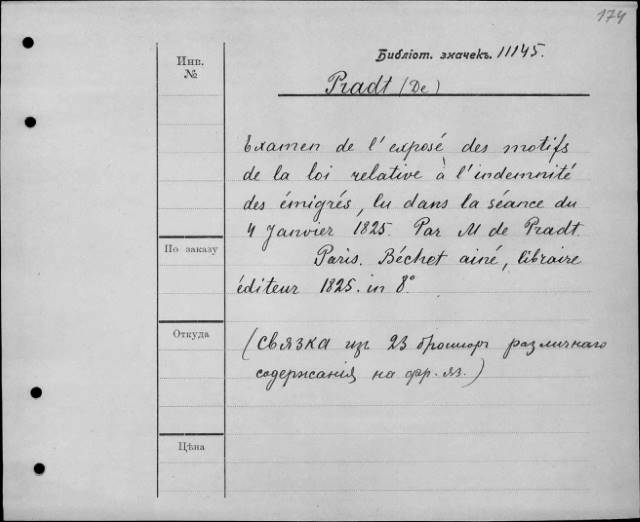 174
Библіот. значекъ 11145.
Инв.
№
Pradt (De)
Examen de l'exposé des motifs
de la loi relative à l'indemnité
des émigrés, lu dans la séance du
4 Janvier 1825. Par M de Pradt.
Paris. Béchet ainé, libraire
éditeur 1825. in 8º
По заказу
Откуда
(связка из 23 брошюр различнаго
содержания на фр. яз.)
Цѣна